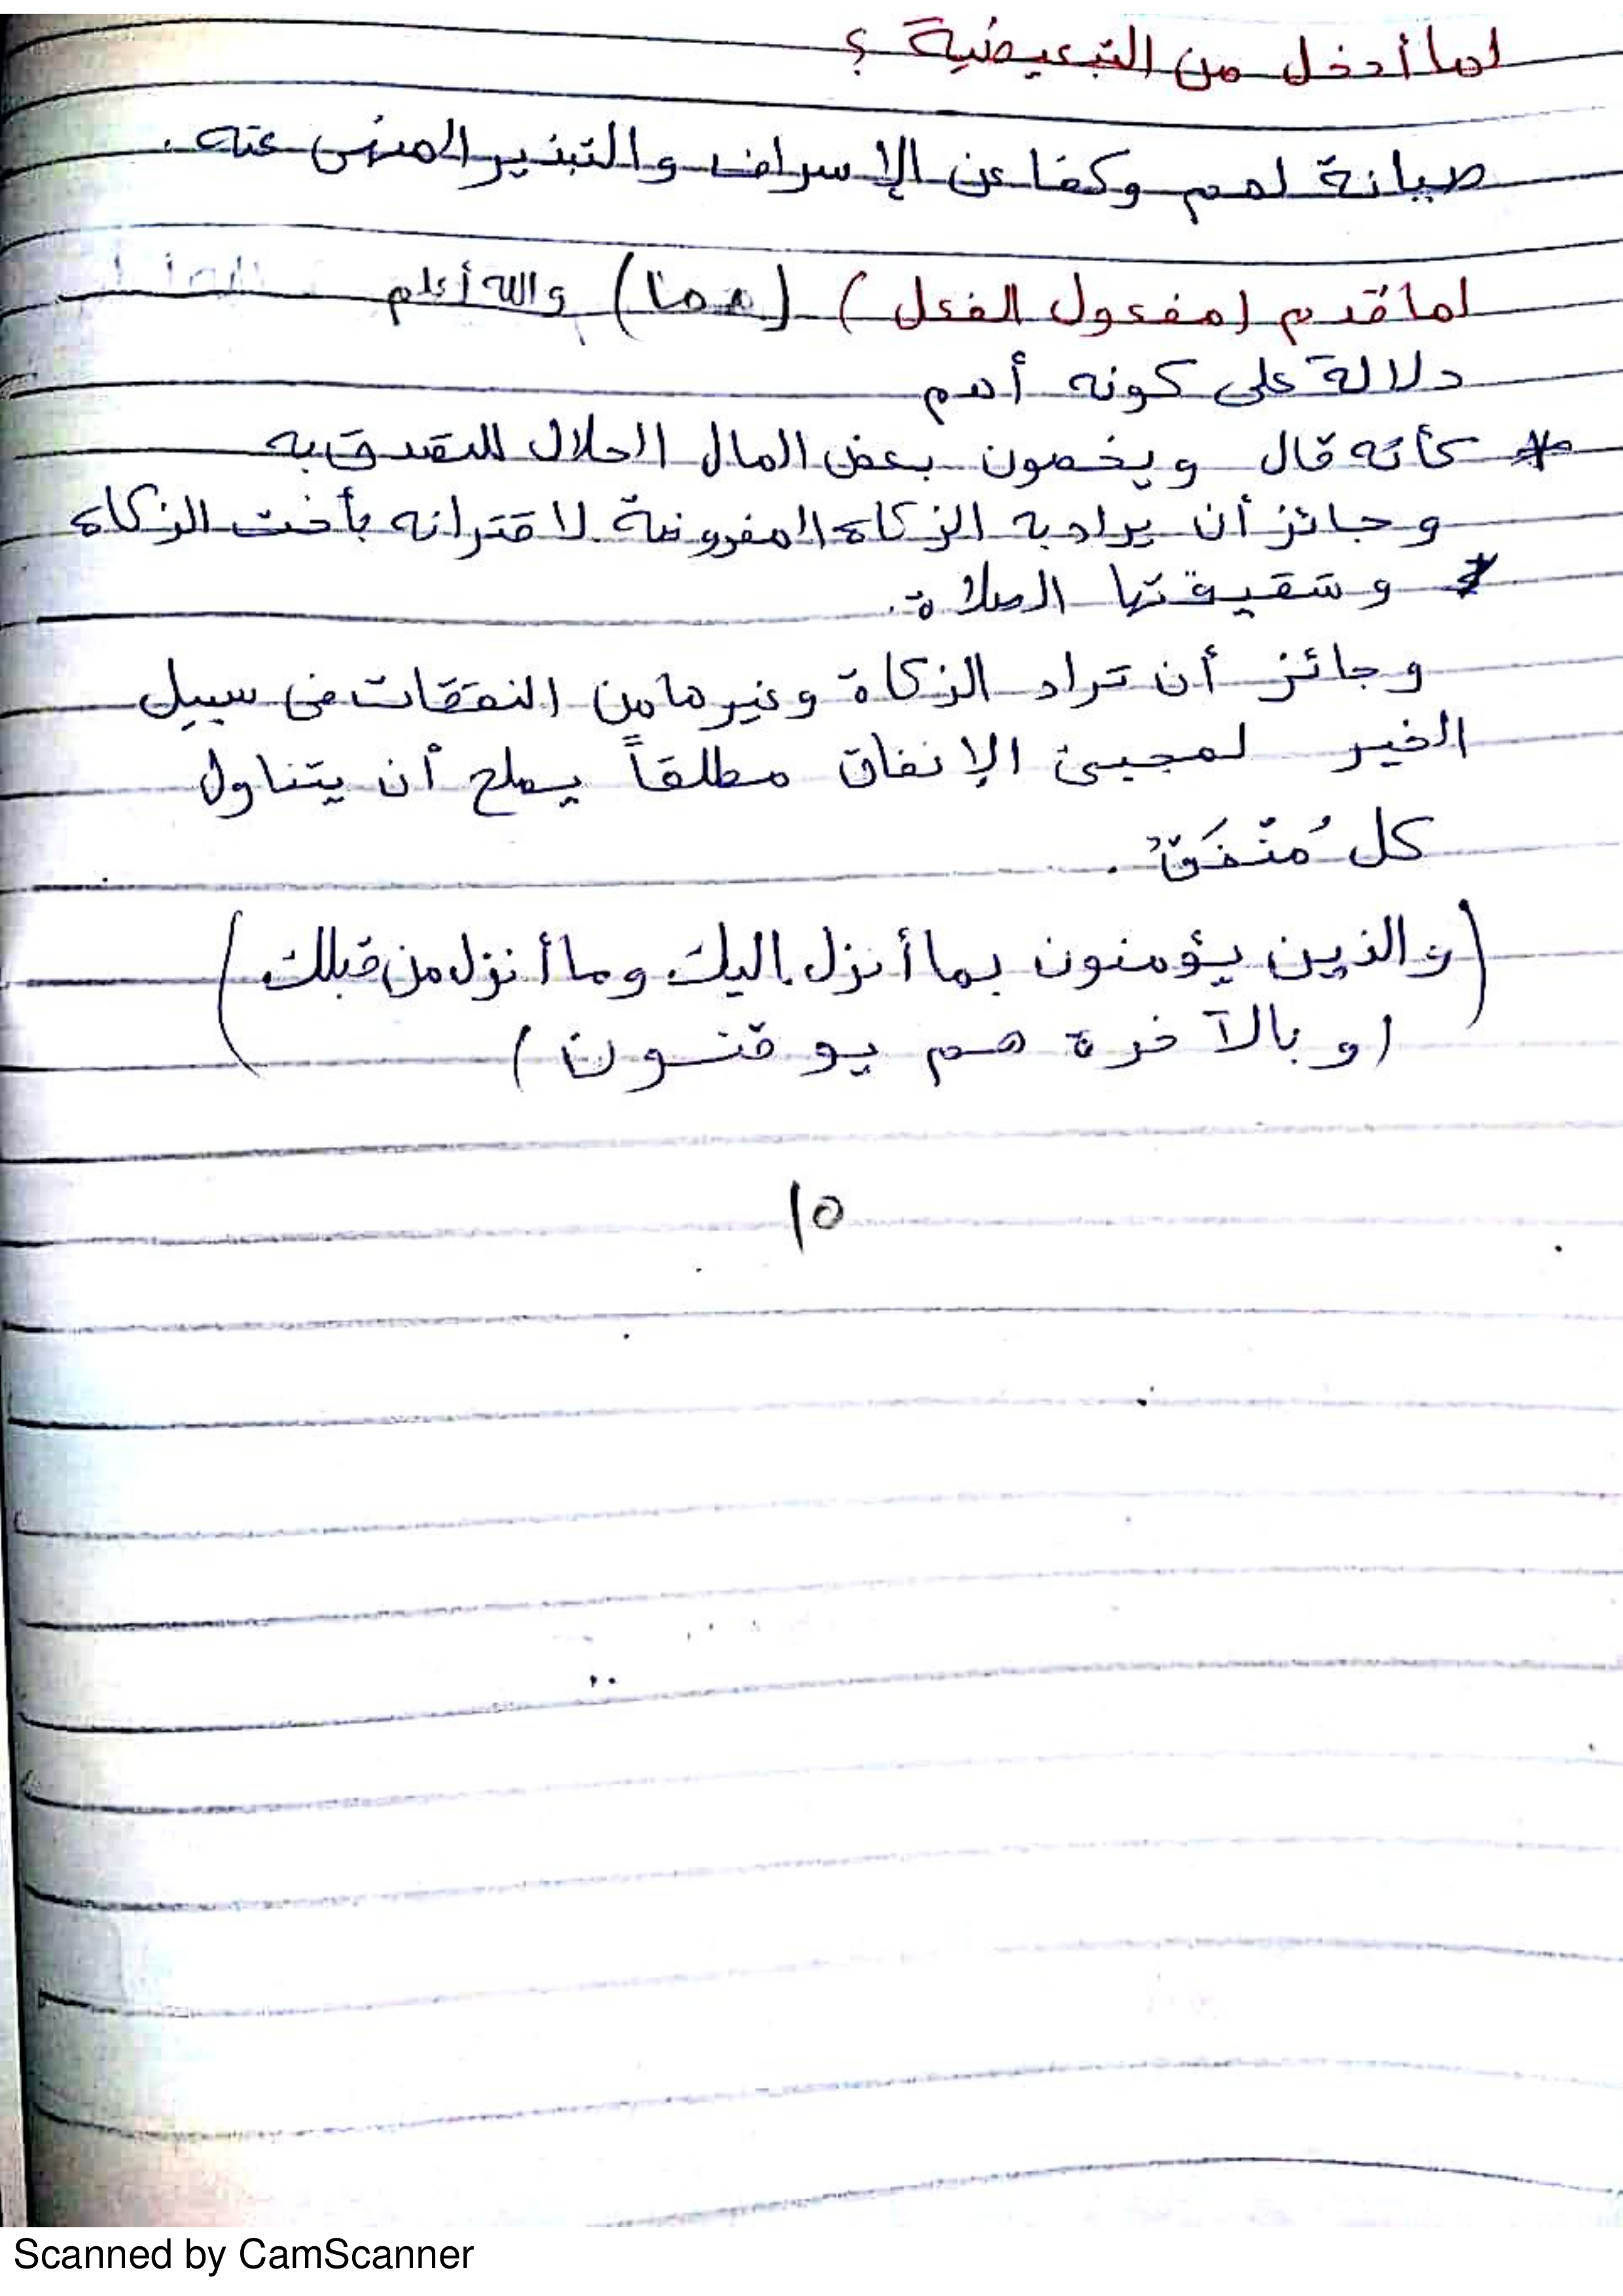 لما أدخل من التبعيضية ؟
صيانة لهم وكفا عن الإسراف والتبذير المنهى عنه .
لما قدم (مفعول الفعل) (مما) والله أعلم
دلالة على كونه أهم
* كأنه قال ويخصون بعض المال الحلال للتصدق به
وجائز أن يراد به الزكاة المفروضة لاقترانه بأخت الزكاة
وشقيقتها الصلاة .
وجائز أن تراد الزكاة وغيرها من النفقات فى سبيل
الخير لمجيئ الإنفاق مطلقاً يصلح أن يتناول
كل مُنْفَقٌ .
(والذين يؤمنون بما أنزل اليك وما أنزل من قبلك)
(وبالآخرة هم يوقنون)
١٥
Scanned by CamScanner